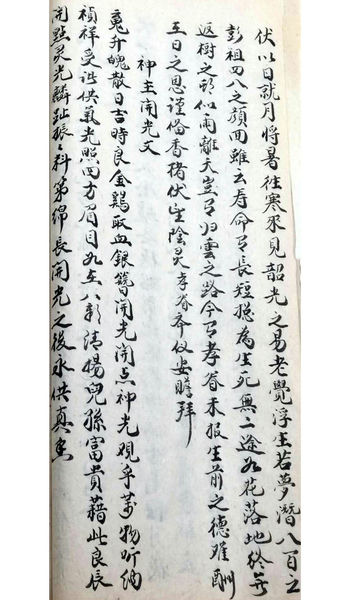 伏以日就月將暑往寒來見韶光之易老覺浮生若夢潛八百之
彭祖四八之顏回雖云壽命有長短總為生死無二途如花落地終無
返樹之期似雨離天豈有归雲之路今有孝眷未报生前之德难酬
日之恩谨俻香楮伏望陰灵孝眷齐仪安瞻拜
神主開光文
魂升魄散日吉時良金鷄取血銀簪開光開点神光觀乎萬物听納
禎祥受誥供氣光照四方眉目如生八彩清揚兒孫富貴藉此良辰
開點灵光麟趾振々科第綿長開光之後永供真香